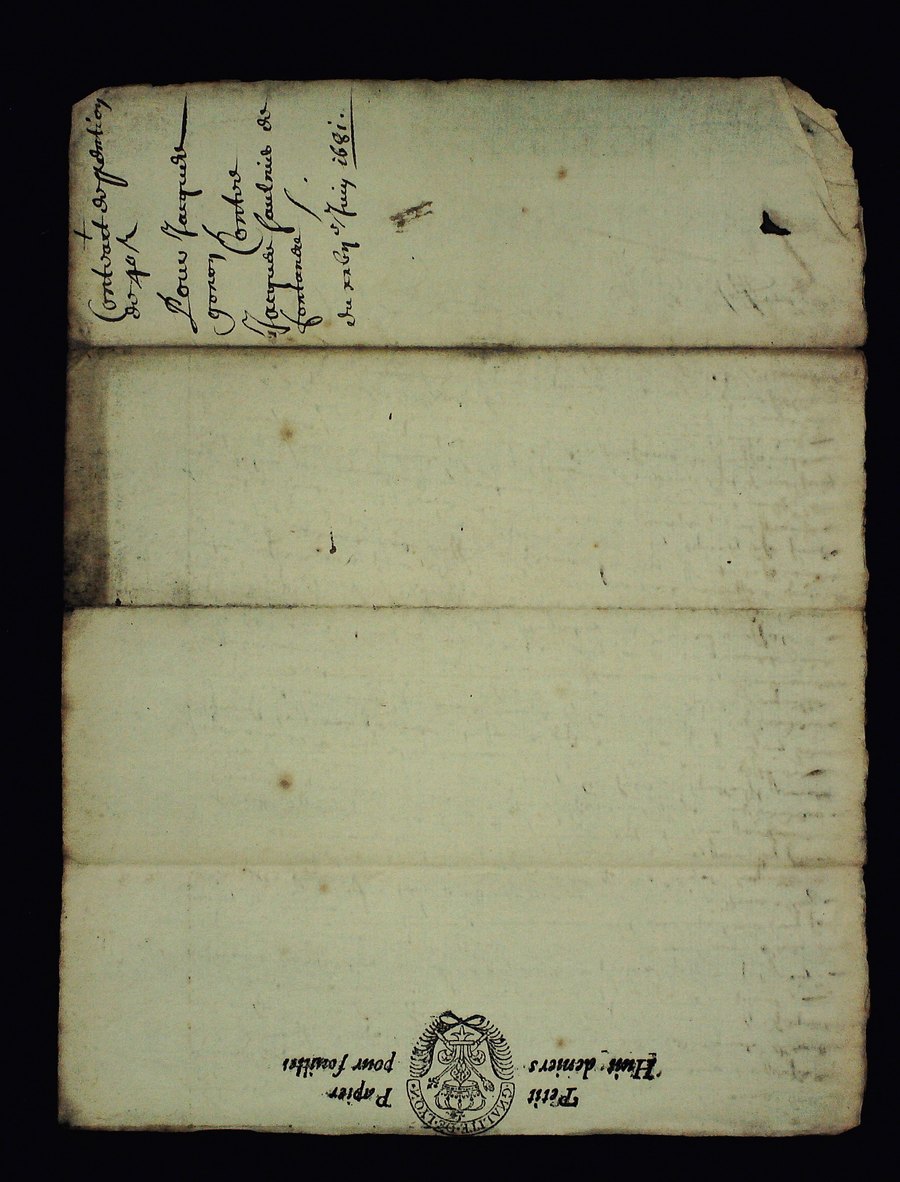 Contract de pention
de 4# 
Pour Jacques
gonon Contre
Jacques faulnid de
fontanes
du xxbij Juin 1681.
Petit Papier
Huit deniers pour feuilles
G'NALITE·DE·LYON